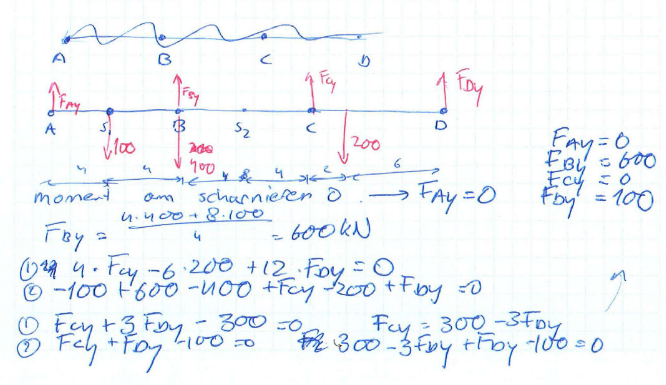 A B C D
F_Ay F_By F_Cy F_Dy
A S B S₂ C D
100 400 200
4 4 4 4 2 6
F_Ay = 0
F_By = 600
F_Cy = 0
F_Dy = 100
moment om scharnieren 0 → F_Ay = 0
F_By = (4·400 + 8·100) / 4 = 600 kN
① 4·F_Cy - 6·200 + 12·F_Dy = 0
② -100 + 600 - 400 + F_Cy - 200 + F_Dy = 0
① F_Cy + 3F_Dy - 300 = 0 F_Cy = 300 - 3F_Dy
② F_Cy + F_Dy - 100 = 0 300 - 3F_Dy + F_Dy - 100 = 0